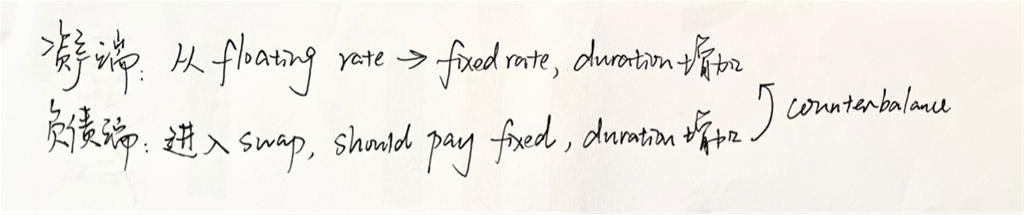 资产端: 从 floating rate → fixed rate, duration 增加
负债端: 进入 swap, should pay fixed, duration 增加
counterbalance